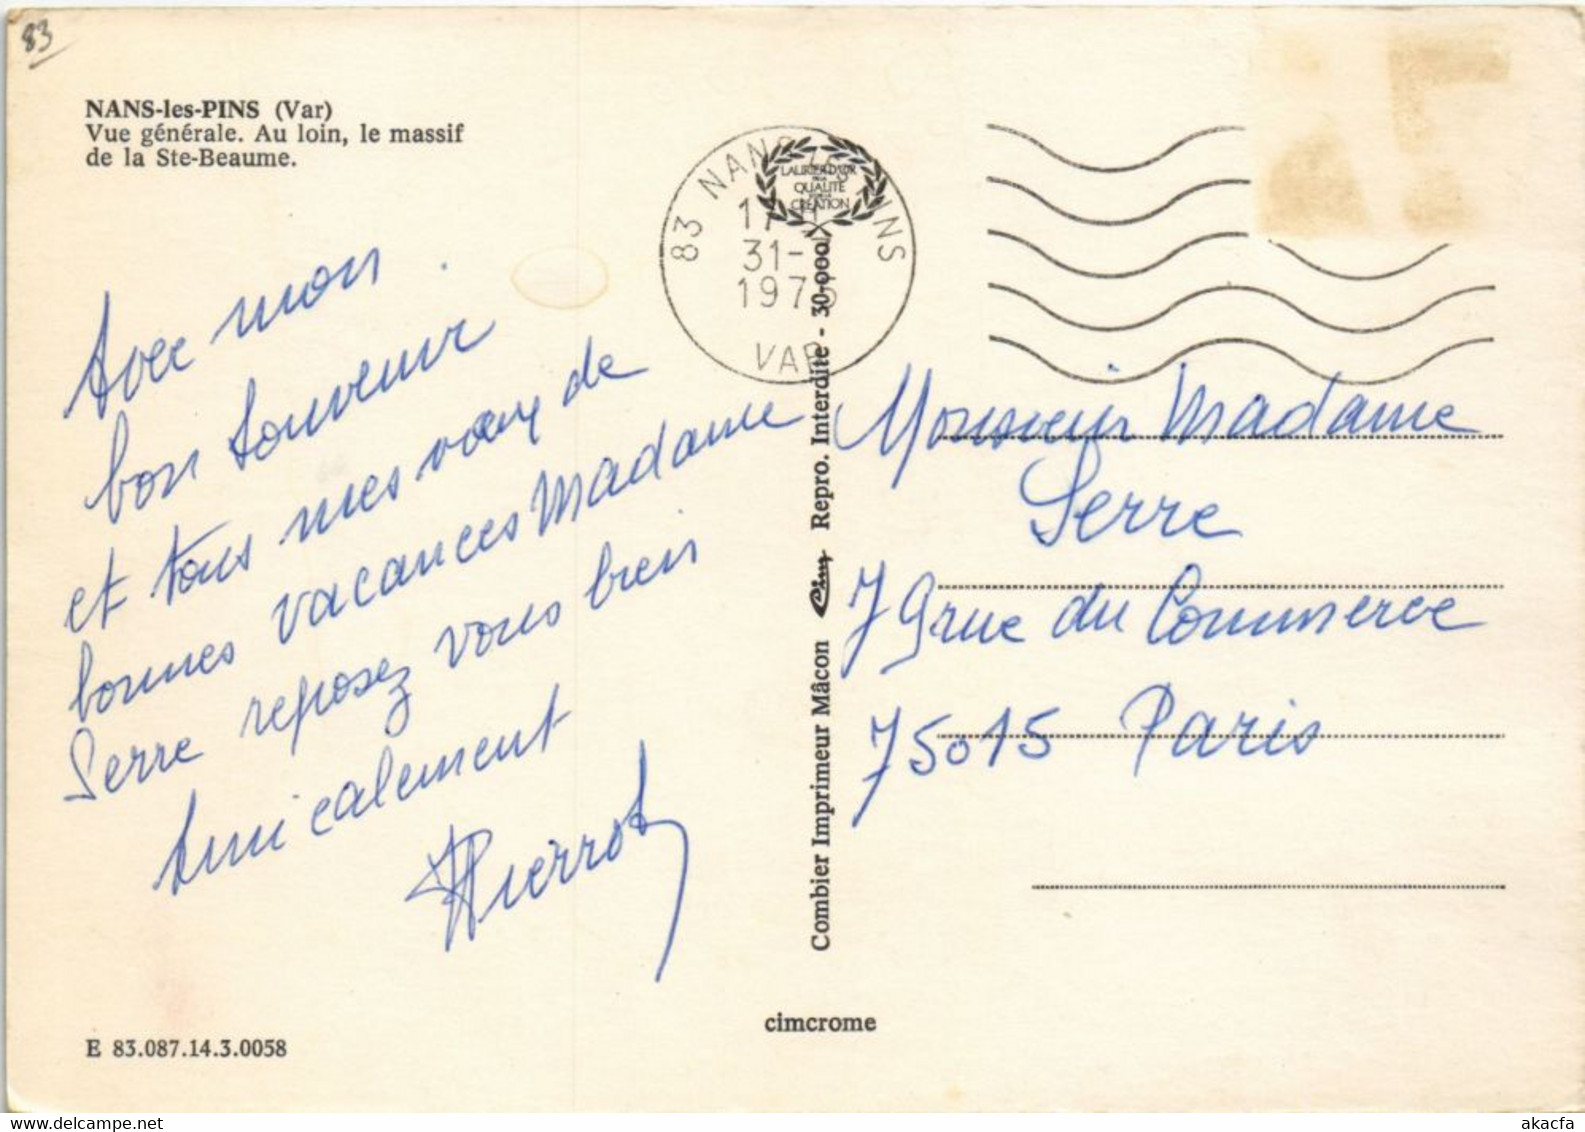 83
NANS-les-PINS (Var)
Vue générale. Au loin, le massif
de la Ste-Beaume.
Avec mon
bon souvenir
et tous mes vœux de
bonnes vacances Madame
Serre reposez vous bien
Amicalement
Pierrot
E 83.087.14.3.0058
83 NANS LES PINS
31-
VAR
LAURIER D'OR
QUALITÉ
CRÉATION
Combier Imprimeur Mâcon Cim Repro. Interdite - 30-000
cimcrome
Monsieur Madame
Serre
79 rue du Commerce
75015 Paris
delcampe.net
akacfa